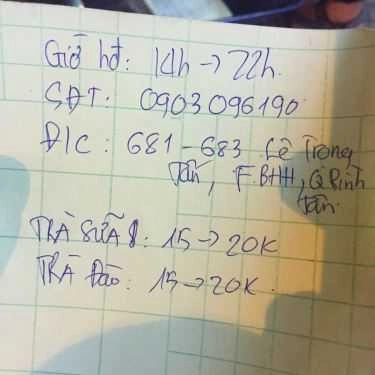 Giờ hđ: 14h → 22h.
SĐT: 0903 096190
Đ/C: 681 - 683 Lê Trọng
Tấn, F BHH, Q Bình
Tân.
TRÀ SỮA: 15 → 20K
TRÀ Đào: 15 → 20K.